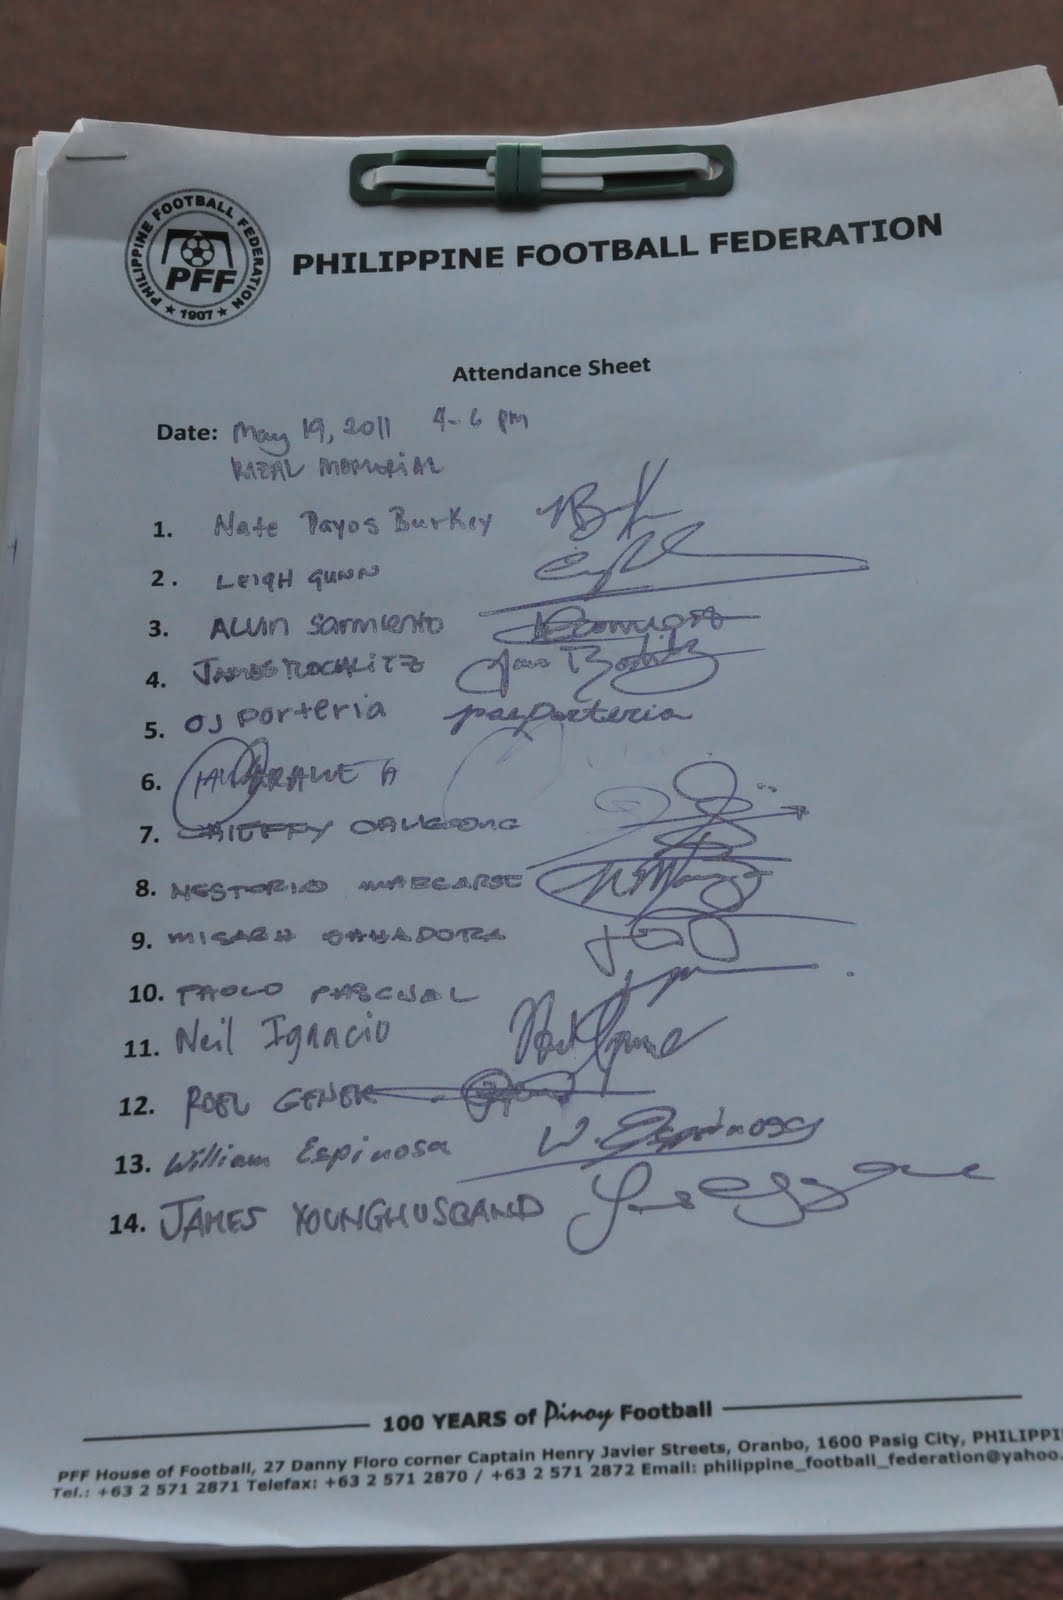 PHILIPPINE FOOTBALL FEDERATION
PFF
★ 1907 ★
PHILIPPINE FOOTBALL FEDERATION
Attendance Sheet
Date: May 19, 2011 4-6 pm
RIZAL MEMORIAL
1. Nate Payos Burkey
2. LEIGH GUNN
3. ALVIN Sarmiento
4. JAMES
5. OJ Porteria pasporteria
6.
7. CHIEFFY
8. NESTORIO
9. MISAGH BAHADORAN
10. PAOLO PASCUAL
11. Neil Ignacio
12. ROEL GENER
13. William Espinosa W. Espinosa
14. JAMES YOUNGHUSBAND
100 YEARS of Pinoy Football
PFF House of Football, 27 Danny Floro corner Captain Henry Javier Streets, Oranbo, 1600 Pasig City, PHILIPPI
Tel.: +63 2 571 2871 Telefax: +63 2 571 2870 / +63 2 571 2872 Email: philippine_football_federation@yahoo.